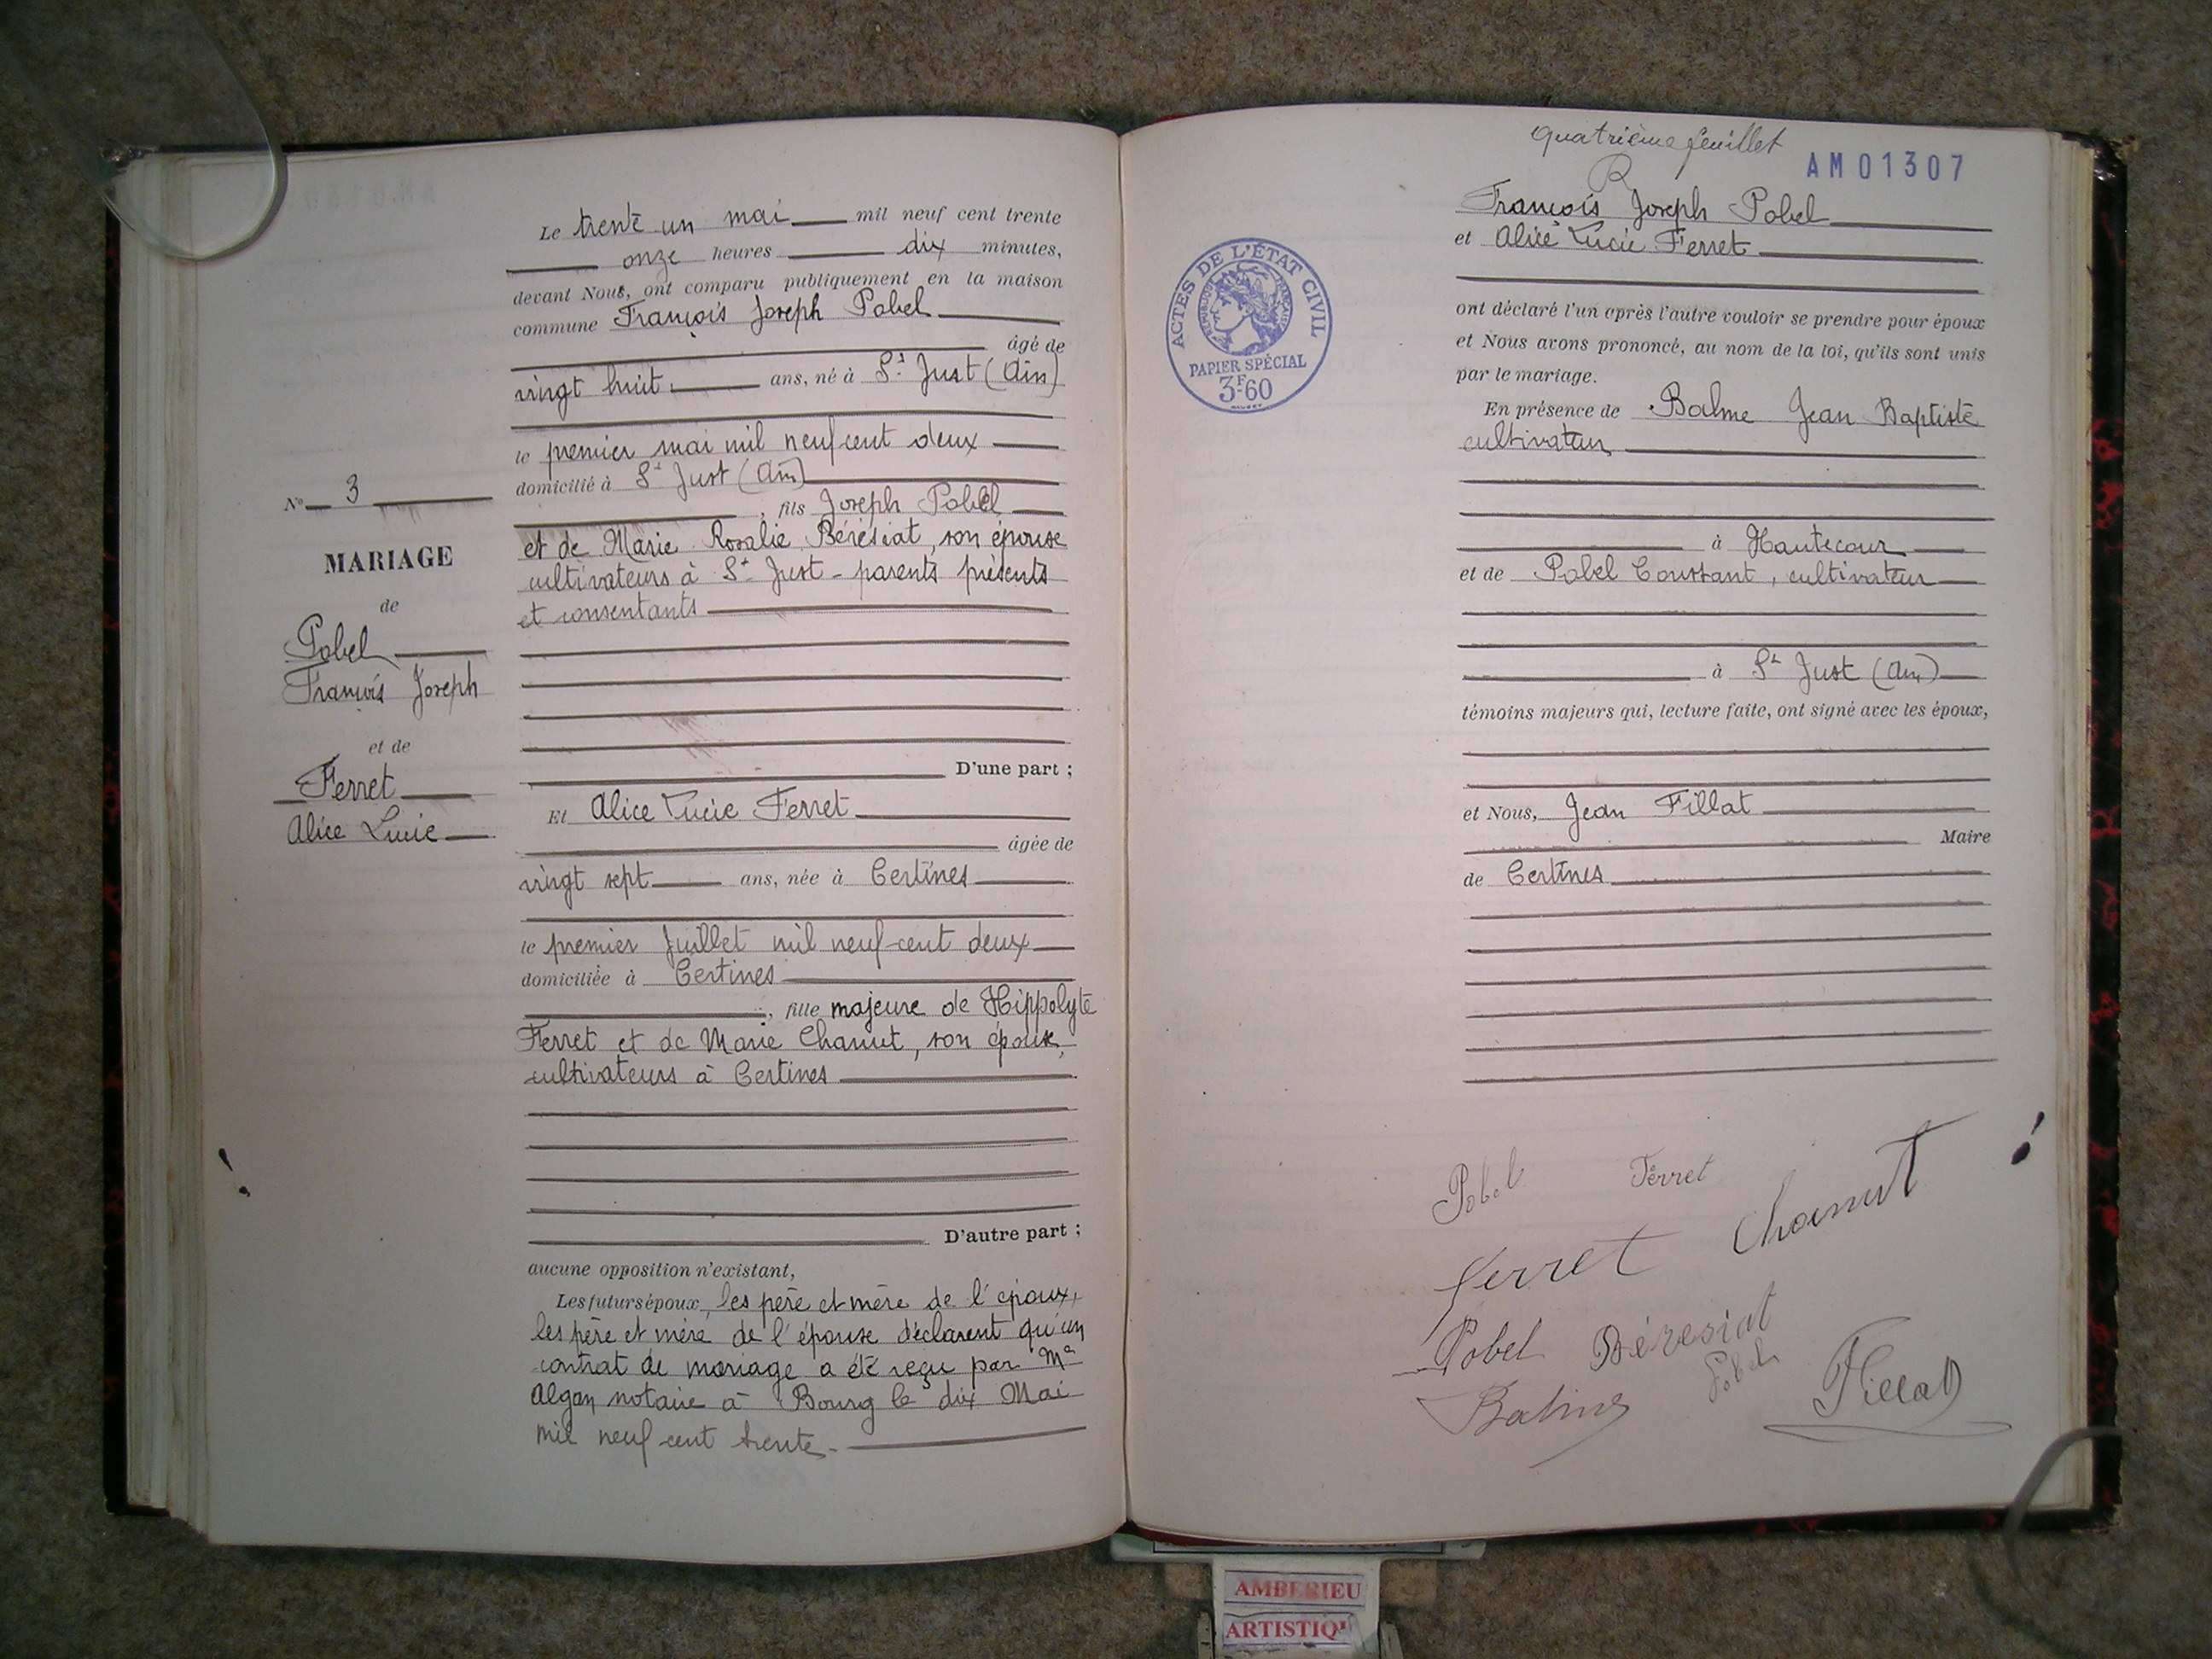 Le trente un mai mil neuf cent trente
onze heures dix minutes,
devant Nous, ont comparu publiquement en la maison
commune François Joseph Pobel
âgé de
vingt huit ans, né à St Just (Ain)
le premier mai mil neuf cent deux
domicilié à St Just (Ain)
, fils Joseph Pobel
et de Marie Rosalie Bérésiat, son épouse
cultivateurs à St Just - parents présents
et consentants
No 3
MARIAGE
de
Pobel
François Joseph
et de
Ferret
Alice Lucie
D'une part ;
Et Alice Lucie Ferret
âgée de
vingt sept ans, née à Certines
le premier Juillet mil neuf-cent deux
domiciliée à Certines
, fille majeure de Hippolyte
Ferret et de Marie Chanut, son épouse,
cultivateurs à Certines
D'autre part ;
aucune opposition n'existant,
Les futurs époux, les père et mère de l'époux,
les père et mère de l'épouse déclarent qu'un
contrat de mariage a été reçu par Me
Algan notaire à Bourg le dix Mai
mil neuf cent trente.
quatrième feuillet
AM01307
ACTES DE L'ÉTAT CIVIL
PAPIER SPÉCIAL
3F60
François Joseph Pobel
et Alice Lucie Ferret
ont déclaré l'un après l'autre vouloir se prendre pour époux
et Nous avons prononcé, au nom de la loi, qu'ils sont unis
par le mariage.
En présence de Balme Jean Baptiste
cultivateur
à Hautecour
et de Pobel Constant, cultivateur
à St Just (Ain)
témoins majeurs qui, lecture faite, ont signé avec les époux,
et Nous, Jean Fillat
Maire
de Certines
Pobel Ferret
Ferret Chanut
Pobel Béresiat
Balme Pobel Fillat
AMBERIEU
ARTISTIQ